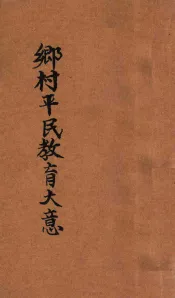 鄉村平民教育大意